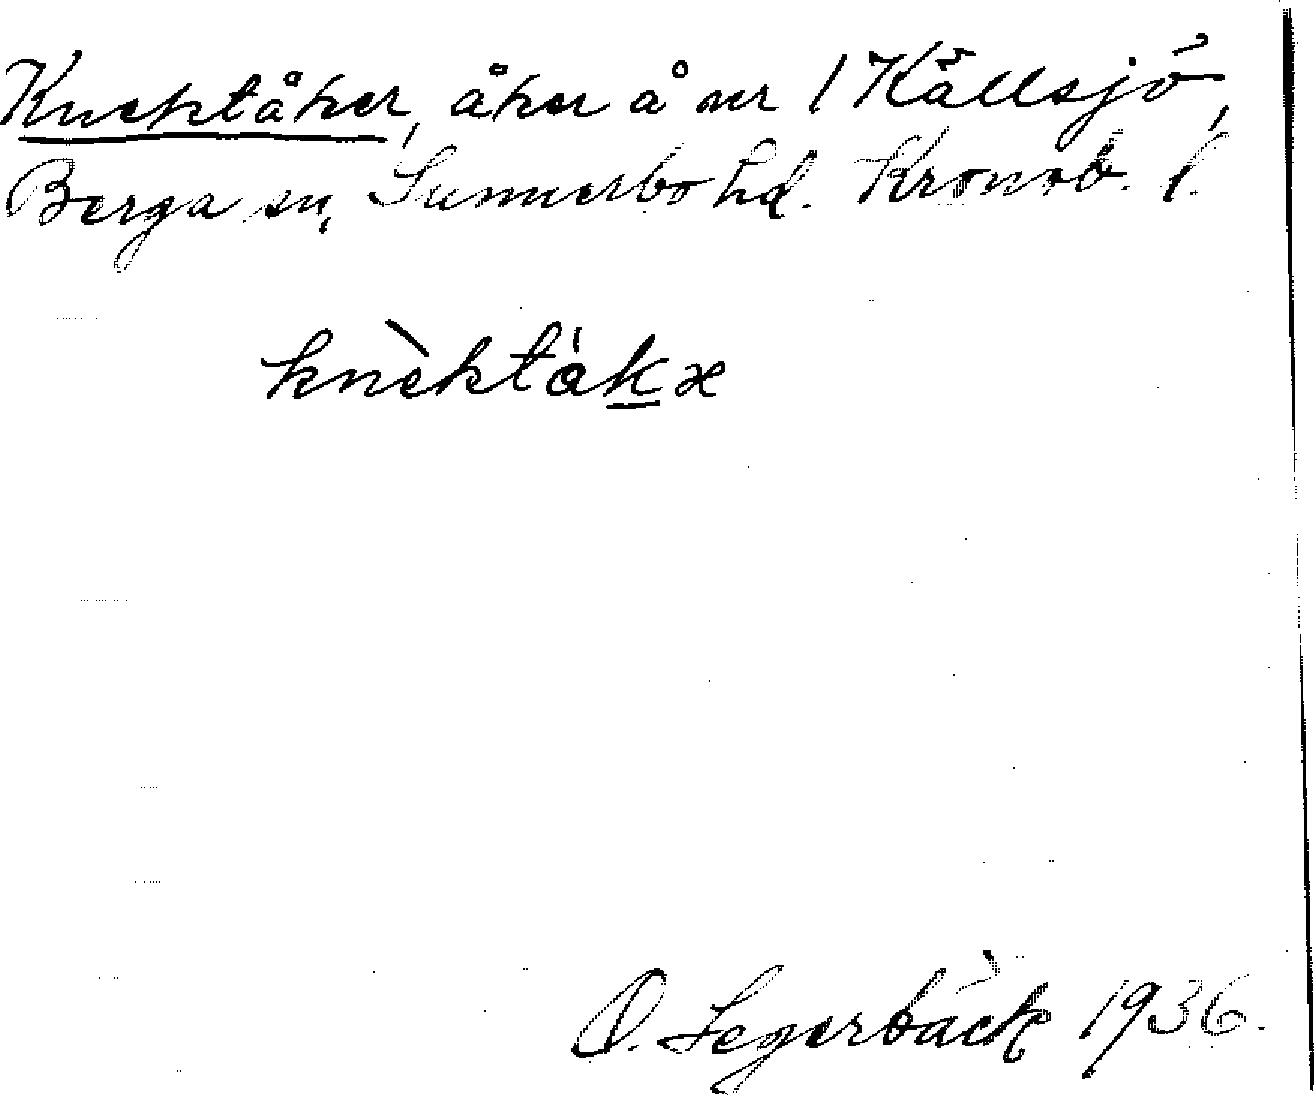 Knektåker, åker å nr 1 Källsjö,
Berga sn, Sunnerbo hd. Kronob. l.
knèktåkæ
O. Segerbäck 1936.